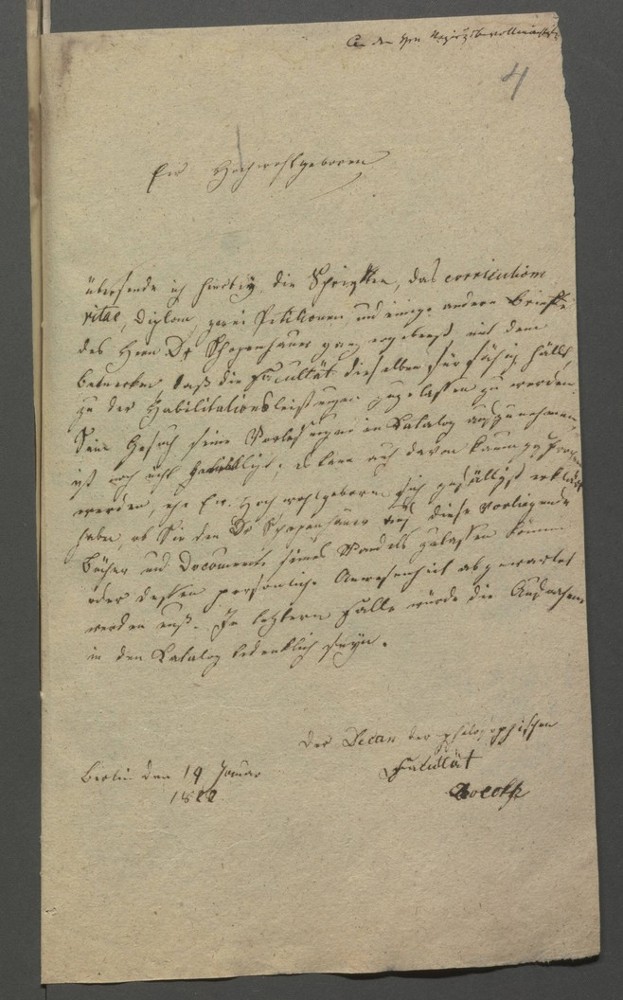 An den Hrn. Regierungsbevollmächt
4
Ew Hochwohlgeboren
übersende ich hierbey die Schriften, das curriculum
vitae, Diplom, zwei Petitionen und einige andere Briefe
des Herrn Dr Schopenhauer ganz ergebenst mit dem
Bemerken daß die Facultät denselben für fähig hält,
zu den Habilitationsleistungen zugelassen zu werden.
Sein Gesuch seine Vorlesungen in Catalog aufzunehmen,
ist noch nicht; es kann auch davon kaum
werden, ehe Ew. Hochwohlgeboren sich gefälligst erklärt
haben, ob Sie den Dr Schopenhauer auf diese vorliegende
Bücher und Documente seines Wandels zulassen können
oder dessen persönliche Anwesenheit abgewartet
werden muß. Im letztern Falle würde die Aufnahme
in den Catalog bedenklich seyn.
Der Decan der philosophischen
Facultät
Berlin den 19 Januar
1820
Boeckh